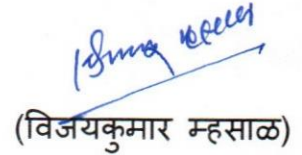 (विजयकुमार म्हसाळ)